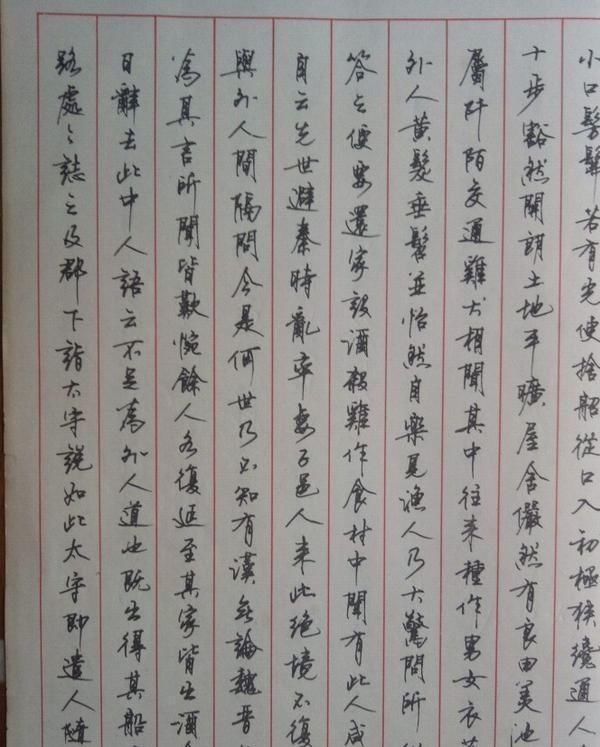 小口髣髴若有光便捨船從口入初極狹纔通人
十步豁然開朗土地平曠屋舍儼然有良田美池
屬阡陌交通雞犬相聞其中往来種作男女衣著
外人黃髮垂髫並怡然自樂見漁人乃大驚問所
答之便要還家設酒殺雞作食村中聞有此人咸
自云先世避秦時亂率妻子邑人来此絕境不復
與外人間隔問今是何世乃不知有漢無論魏晉
為其言所聞皆歎惋餘人各復延至其家皆出酒
日辭去此中人語云不足為外人道也既出得其船
路處〻誌之及郡下詣太守說如此太守即遣人隨